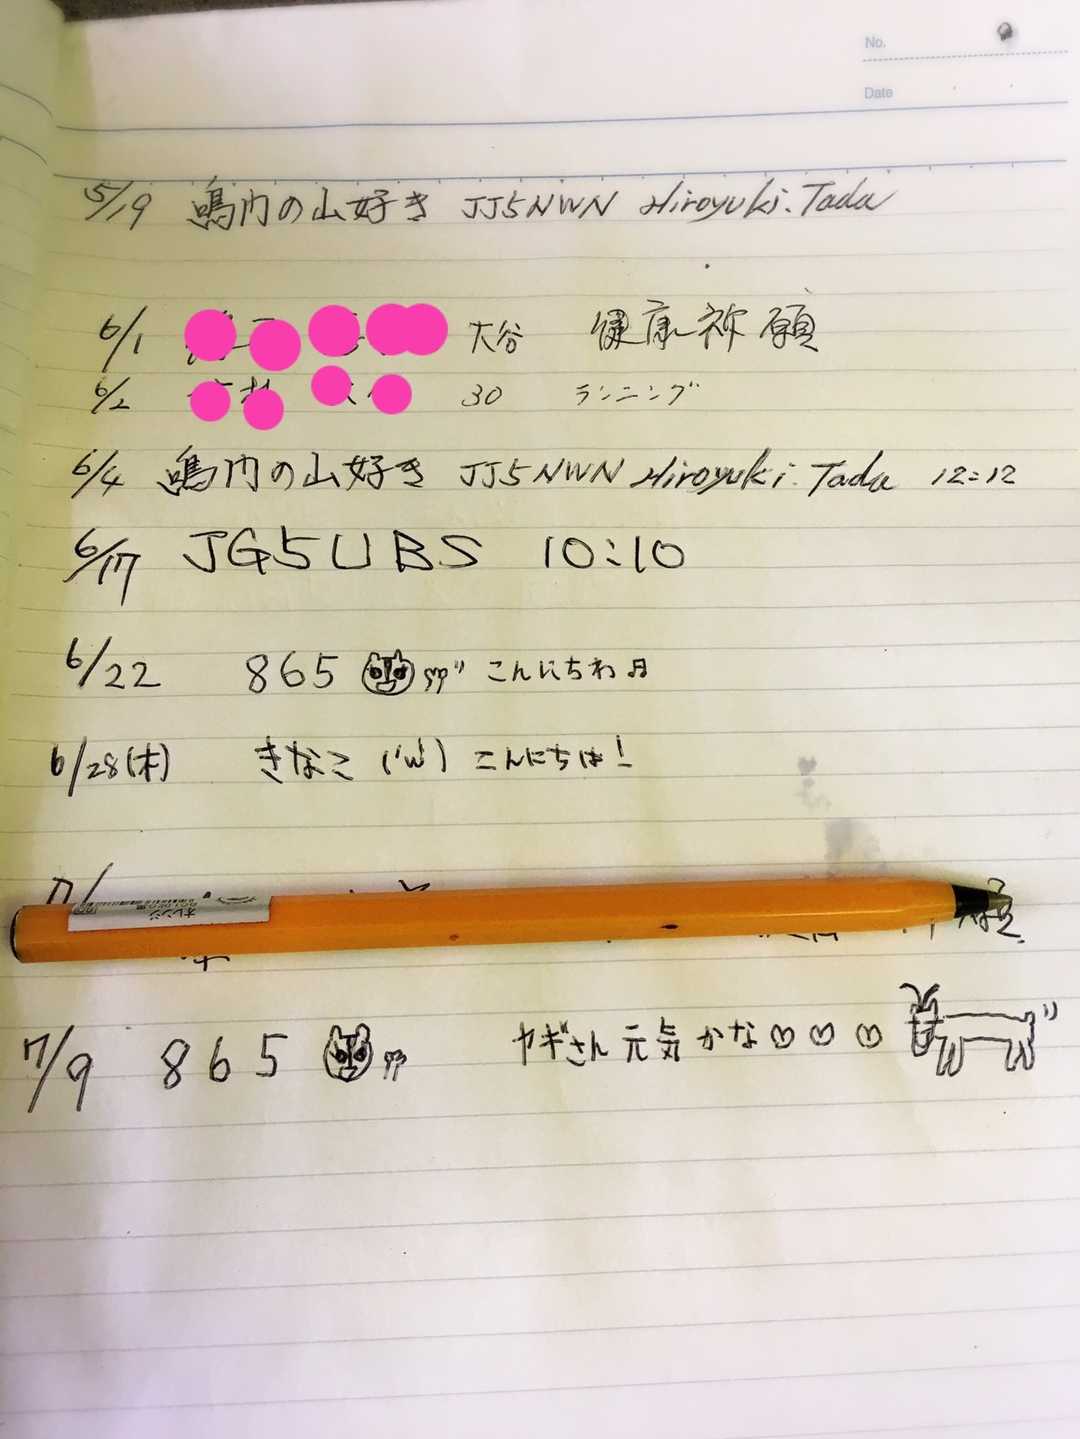 No.
Date
5/19 鳴門の山好き JJ5NWN Hiroyuki.Tada
6/1 大谷 健康祈願
6/2 30 ランニング
6/4 鳴門の山好き JJ5NWN Hiroyuki.Tada 12:12
6/17 JG5UBS 10:10
6/22 865 こんにちわ♬
6/28(木) きなこ ('ω') こんにちは!
オレンジ
7/9 865 ヤギさん元気かな♡♡♡